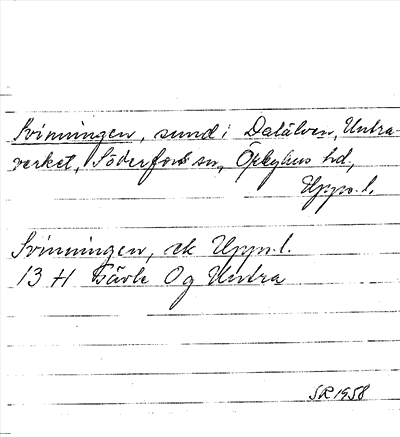 Svinningen, sund i Dalälven, Untra-
verket, Söderfors sn, Örbyhus hd,
Upps. l.
Svinningen, ek Upps. l.
13 H Gävle Og Untra
SR 1958